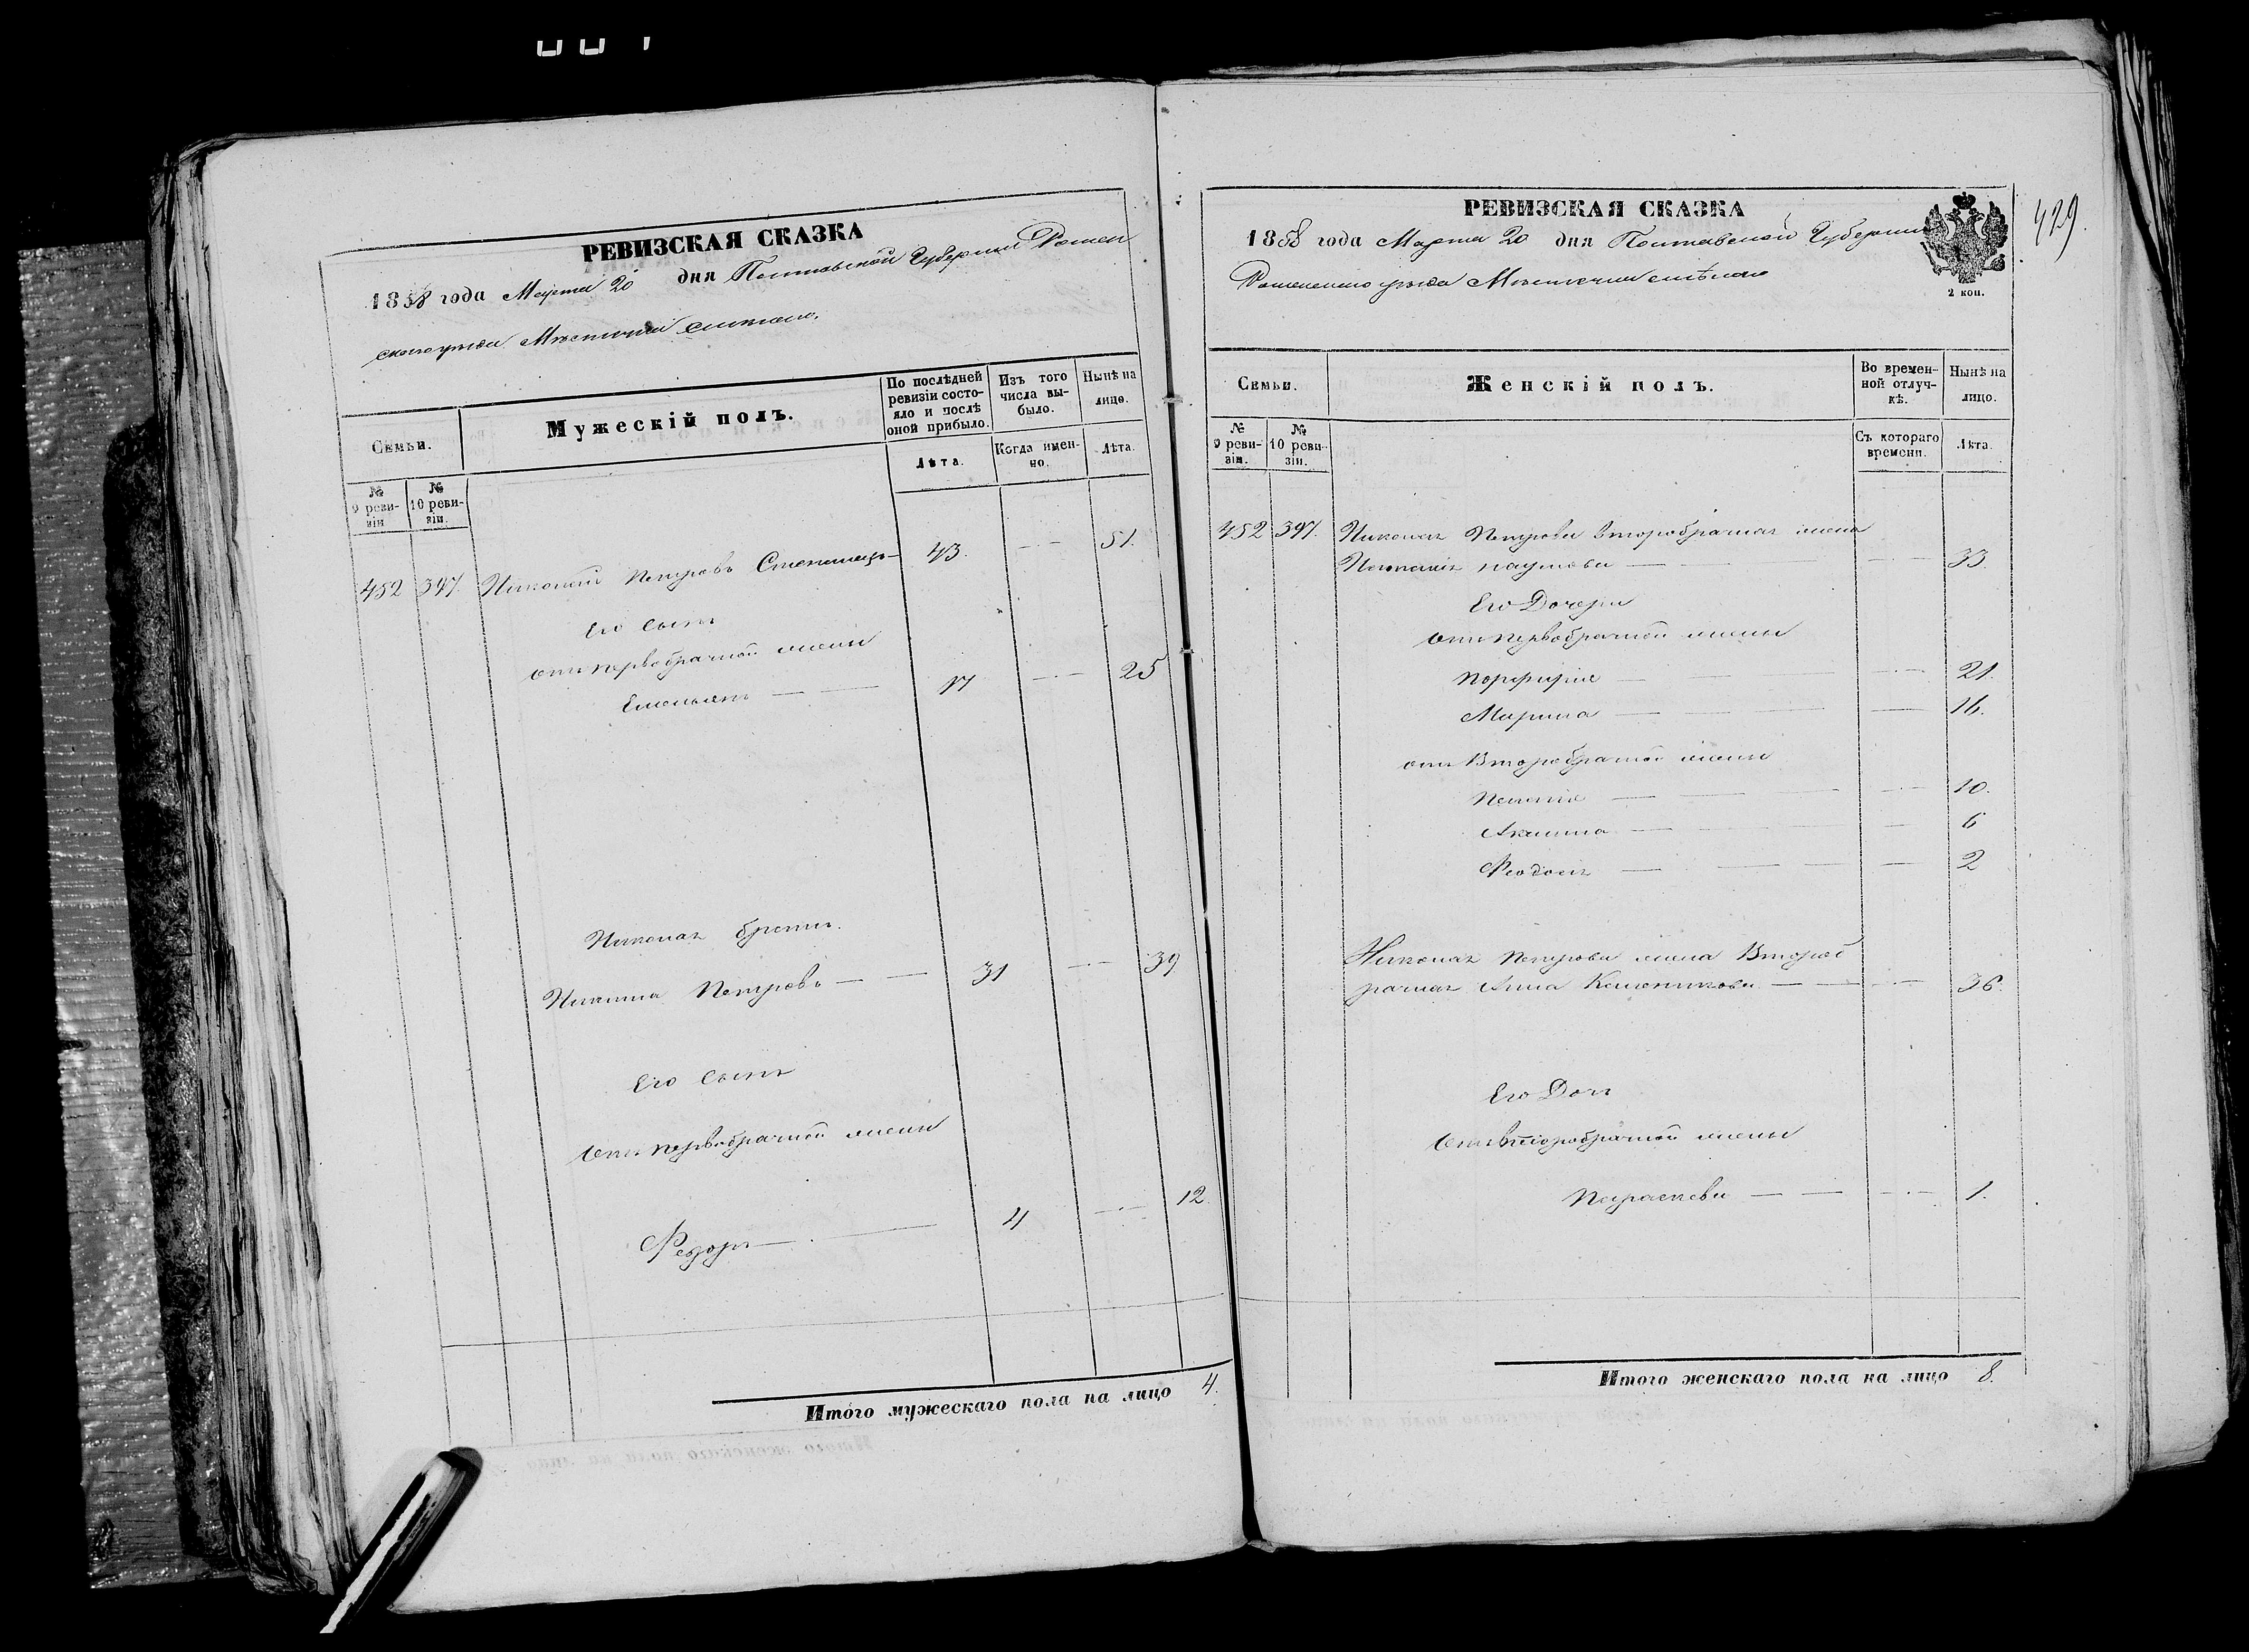 РЕВИЗСКАЯ СКАЗКА
1858 года Марта 20 дня Полтавской Губернии Ромен
скаго уезда Местечка Смѣлаго
Семьи.
Мужескій полъ.
По послѣдней ревизіи состояло и послѣ оной прибыло.
Изъ того числа выбыло.
Нынѣ на лицо.
№ 9 ревизіи
№ 10 ревизіи.
Лѣта.
Когда именно.
Лѣта.
452 397. Петровъ 43. 51.
Его Сынъ
отъ первобрачной жены
Емельянъ 17 25
братъ.
Никита Петровъ 31 39
Его Сынъ
Отъ первобрачной жены
Федоръ 4 12.
Итого мужескаго пола на лицо 4.
429.
РЕВИЗСКАЯ СКАЗКА
1858 года Марта 20 дня Полтавской Губернии
Роменскаго уезда Местечка Смѣлаго
2 коп.
Семьи.
Женскій полъ.
Во временной отлучкѣ.
Нынѣ на лицо.
№ 9 ревизіи.
№ 10 ревизіи.
Съ котораго времени.
Лѣта.
452 397. Петрова второбрачная жена
Наумова 33.
Его Дочери
отъ первобрачной жены
Порфирія 21.
Марина 16.
отъ Второбрачной жены
10.
Акилина 6
Феодосія 2
Петрова жена Второб
рачная Анна 36.
Его Дочь
Отъ второбрачной жены
Параскева 1.
Итого женскаго пола на лицо 8.